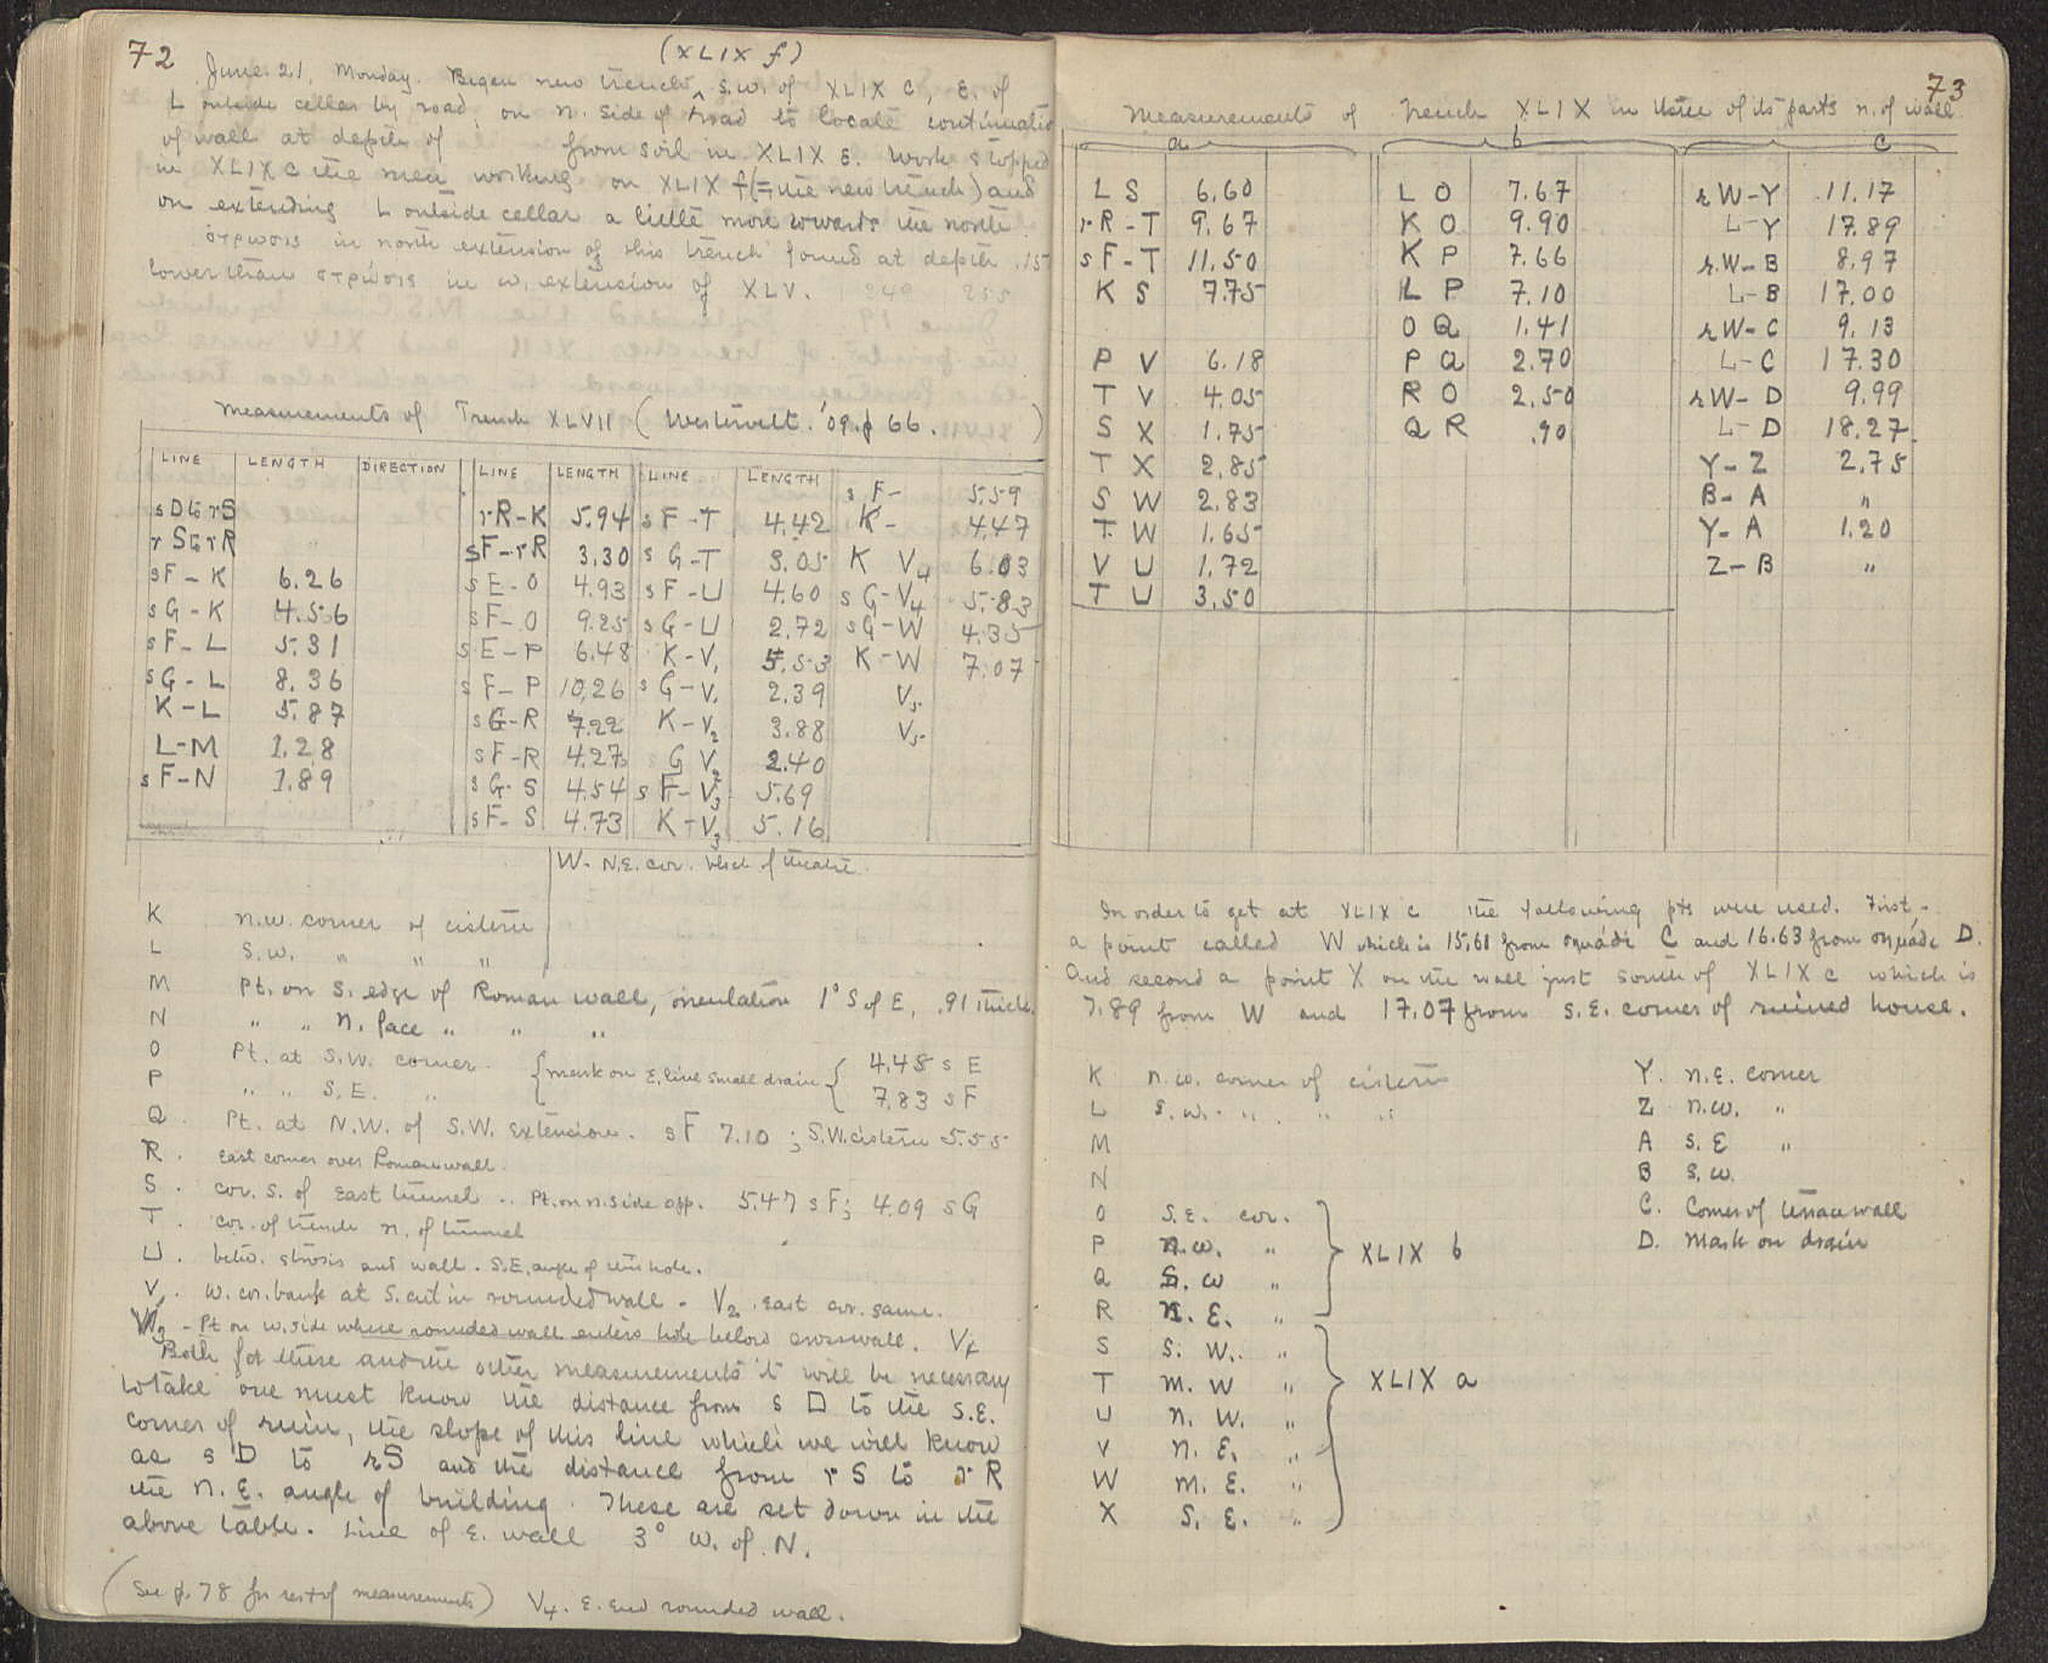 72
(XLIX f)
June 21. Monday. Began new trench ^ S.W. of XLIX C, E. of
L outside cellar by road, on N. side of road to locate continuation
of wall at depth of from soil in XLIX E. Work stopped
in XLIX C the men working on XLIX f (= the new trench) and
on extending L outside cellar a little more towards the north.
στρῶσις in north extension of this trench found at depth .15
lower than στρῶσις in W. extension of XLV.
Measurements of Trench XLVII (Westervelt. '09. p 66. )
LINE LENGTH DIRECTION LINE LENGTH LINE LENGTH
s F- 5.59
s D to r S r R-K 5.94 s F-T 4.42 K- 4.47
r S to r R s F-r R 3.30 s G-T 3.05 K V4 6.03
s F-K 6.26 s E-O 4.93 s F-U 4.60 s G-V4 5.83
s G-K 4.56 s F-O 9.25 s G-U 2.72 s G-W 4.35
s F-L 5.31 s E-P 6.48 K-V1 5.53 K-W 7.07
s G-L 8.36 s F-P 10.26 s G-V1 2.39 V5
K-L 5.87 s G-R 7.22 K-V2 3.88 V5
L-M 1.28 s F-R 4.27 G V2 2.40
s F-N 1.89 s G-S 4.54 s F-V3 5.69
s F-S 4.73 K-V3 5.16
W- N.E. cor. block of theatre
K N.W. corner of cistern
L S.W. " " "
M Pt. on S. edge of Roman wall, orientation 1° S of E, .91 thick.
N " " N. face " " "
O Pt. at S.W. corner. { mark on E. line small drain { 4.48 s E
P " " S.E. " 7.83 s F
Q. Pt. at N.W. of S.W. extension. s F 7.10 ; S.W. cistern 5.55
R. East corner over Roman wall.
S. cor. S. of East tunnel .. Pt. on n. side opp. 5.47 s F; 4.09 s G
T. cor. of trench n. of tunnel
U. betw. strosis and wall. S.E. angle of this hole.
V1. W. cor. bank at S. cut in rounded wall - V2. East cor. same.
V3 - Pt on W. side where rounded wall enters hole below crosswall. V4
Both for these and the other measurements it will be necessary
to take one must know the distance from s D to the S.E.
corner of ruin, the slope of this line which we will know
as s D to r S and the distance from r S to r R
the N.E. angle of building. These are set down in the
above table. Line of E. wall 3° W. of N.
(See p. 78 for rest of measurements) V4. E. end rounded wall.
73
Measurements of Trench XLIX in three of its parts n. of wall
a b c
L S 6.60 L O 7.67 r W-Y 11.17
r R-T 9.67 K O 9.90 L-Y 17.89
s F-T 11.50 K P 7.66 r W-B 8.97
K S 7.75 L P 7.10 L-B 17.00
O Q 1.41 r W-C 9.13
P V 6.18 P Q 2.70 L-C 17.30
T V 4.05 R O 2.50 r W-D 9.99
S X 1.75 Q R .90 L-D 18.27
T X 2.85 Y-Z 2.75
S W 2.83 B-A "
T W 1.65 Y-A 1.20
V U 1.72 Z-B "
T U 3.50
In order to get at XLIX c the following pts were used. First,-
a point called W which is 15.61 from σημάδι C and 16.63 from σημάδι D.
And second a point X on the wall just south of XLIX c which is
7.89 from W and 17.07 from S.E. corner of ruined house.
K N.W. corner of cistern
L S.W. " " "
M
N
O S.E. cor.
P N.W. "
Q S.W "
R N.E. "
XLIX b
S S. W. "
T M. W "
U N. W. "
V N. E. "
W M. E. "
X S. E. "
XLIX a
Y. N.E. corner
Z N.W. "
A S.E "
B S.W.
C. Corner of terrace wall
D. Mark on drain